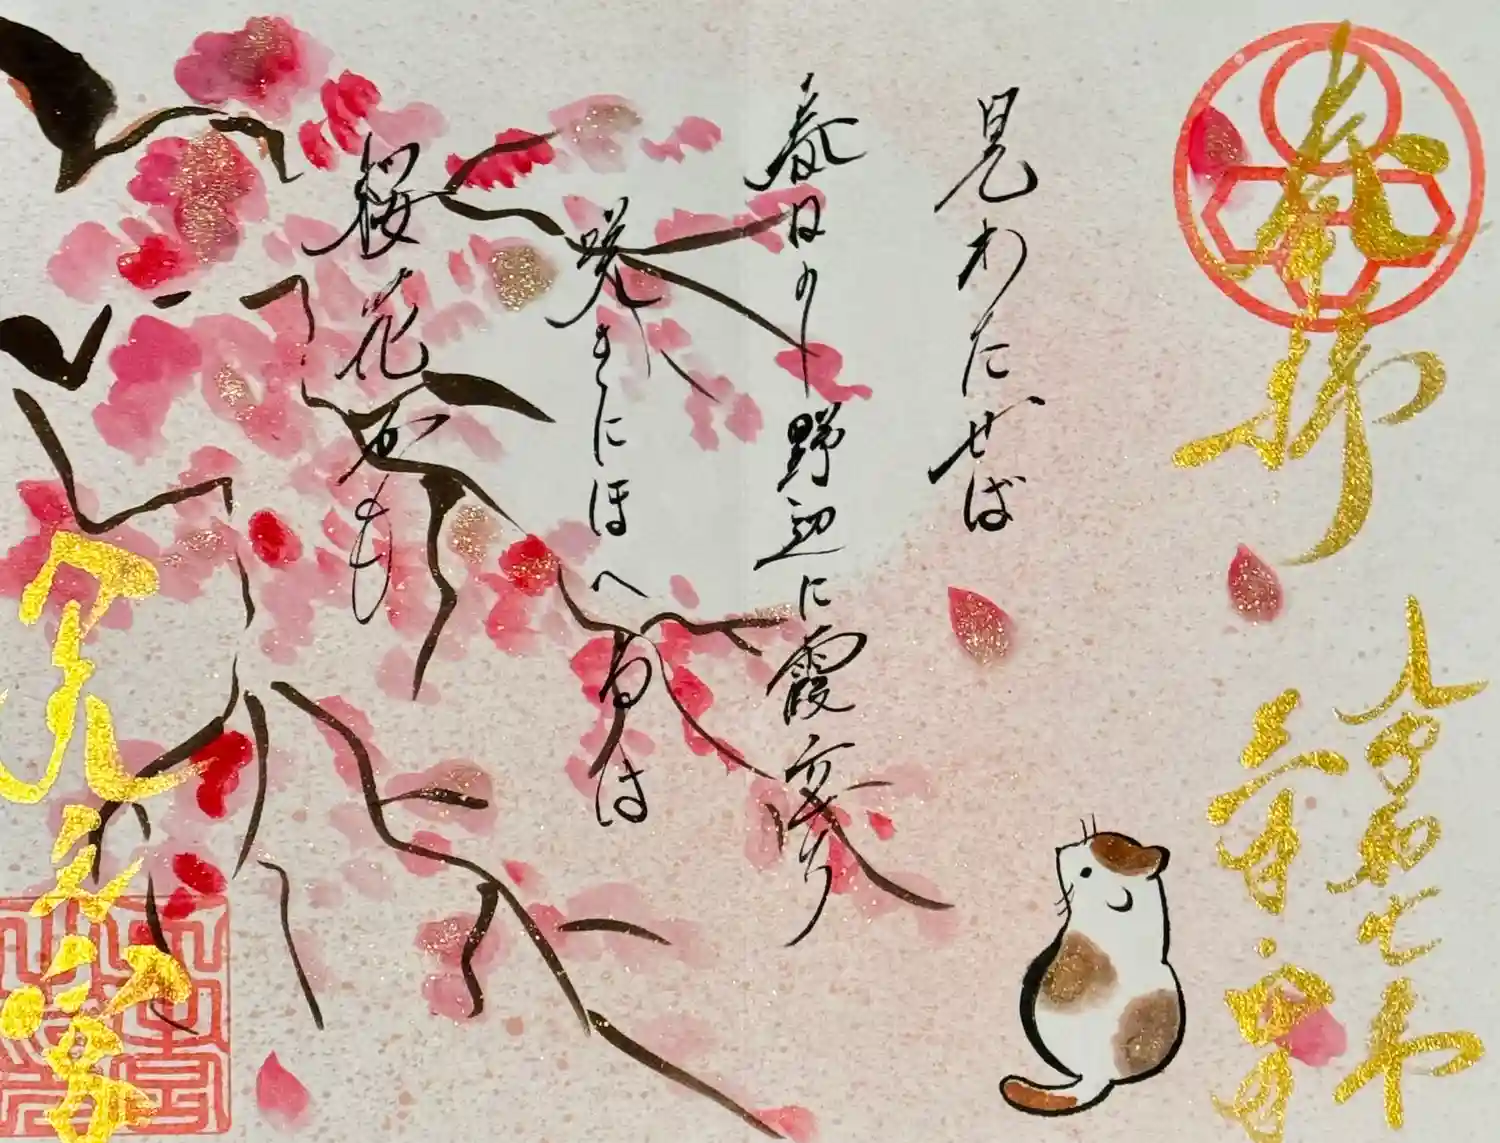 奉拝
令和七年
三月
見わたせば
春日の野辺に霞立ち
咲きにほへるは
桜花かも